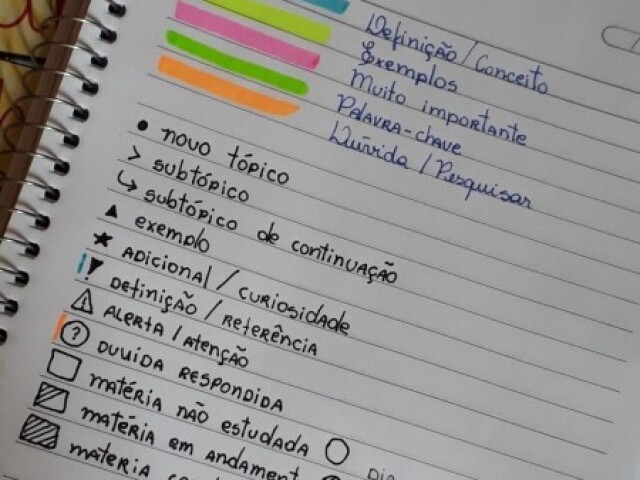 Definição/Conceito
Exemplos
Muito importante
Palavra-chave
Dúvida/Pesquisar
• novo tópico
> subtópico
↳ subtópico de continuação
▲ exemplo
★ Adicional/curiosidade
Definição/referência
⚠ Alerta/atenção
? Duuida respondida
matéria não estudada
matéria em andament
materia